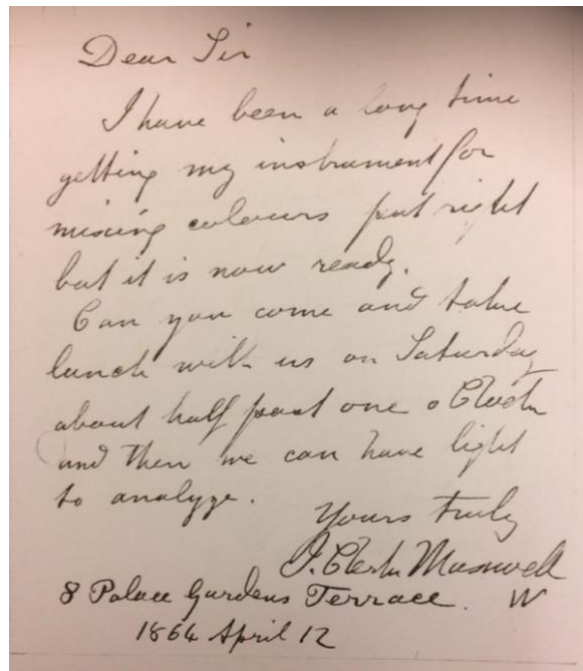 Dear Sir
I have been a long time
getting my instrument for
mixing colours put right
but it is now ready.
Can you come and take
lunch with us on Saturday
about half past one o Clock
and then we can have light
to analyze.
Yours truly
J. Clerk Maxwell
8 Palace Gardens Terrace. W
1864 April 12